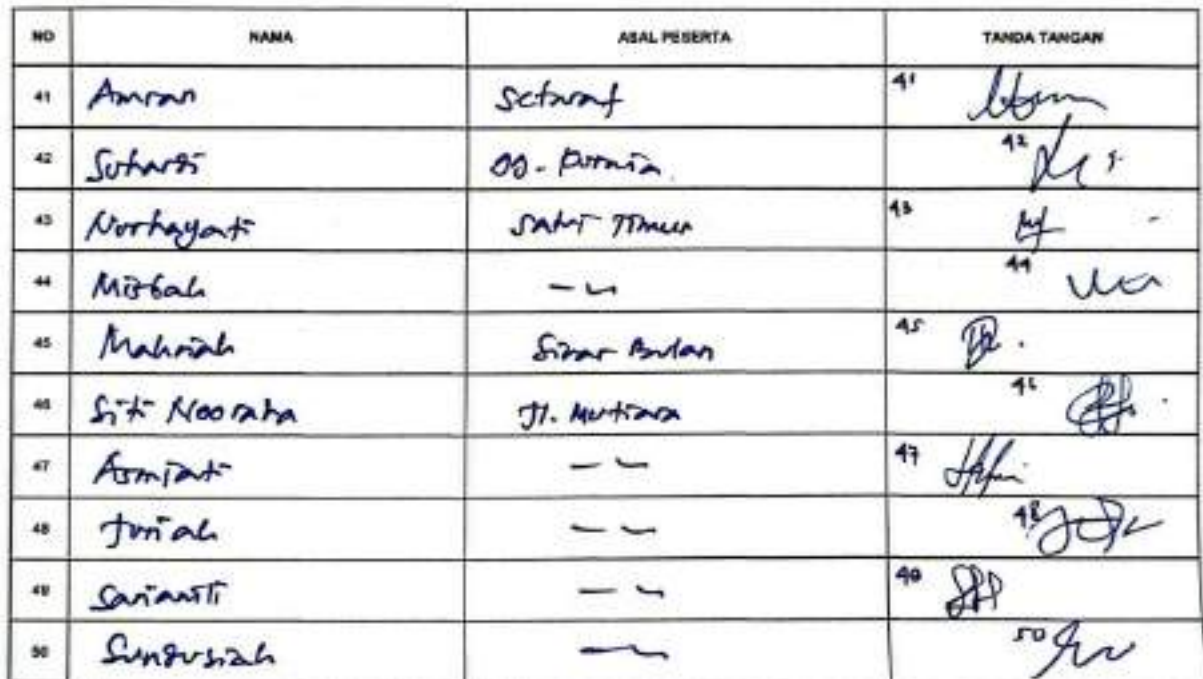 NO NAMA ASAL PESERTA TANDA TANGAN
41 Amran 41
42 Suhardi GG. Kurnia 42
43 Norhayati Sahri Timur 43
44 Misbah - 44
45 Mahriah Sinar Bulan 45
46 Siti Nooraha Jl. Mutiara 46
47 Asmiati - 47
48 Juriah - 48
49 Sarianiti - 49
50 Sungusiah - 50